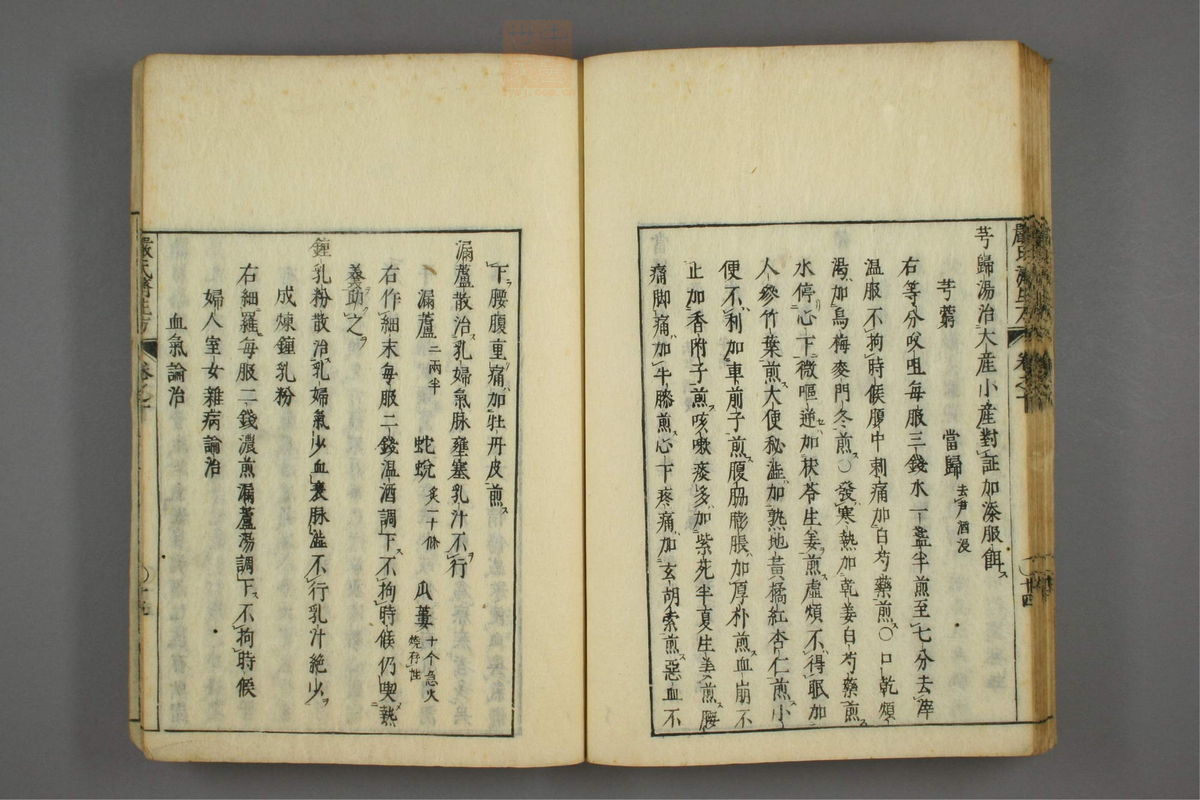 芎歸湯治大產小產對証加添服餌
芎藭 當歸去芦酒浸
右等分㕮咀每服三錢水一盞半煎至七分去滓
温服不拘時候腹中刺痛加白芍藥煎〇口乾煩
渴加烏梅麥門冬煎〇發寒熱加乾姜白芍藥煎
水停心下微嘔逆加茯苓生姜煎虛煩不得眠加
人參竹葉煎大便秘澁加熟地黃橘紅杏仁煎小
便不利加車前子煎腹脇膨脹加厚朴煎血崩不
止加香附子煎咳嗽痰多加紫菀半夏生姜煎腰
痛脚痛加牛膝煎心下疼痛加玄胡索煎惡血不
下腰腹重痛加牡丹皮煎
漏蘆散治乳婦氣脉壅塞乳汁不行
漏蘆二兩半 蛇蛻炙一十條 瓜蔞十个急火燒存性
右作細末每服二錢温酒調下不拘時候仍喫熱
羹助之
鍾乳粉散治乳婦氣少血衰脉澁不行乳汁絶少
成煉鍾乳粉
右細羅每服二錢濃煎漏蘆湯調下不拘時候
婦人室女雜病論治
血氣論治